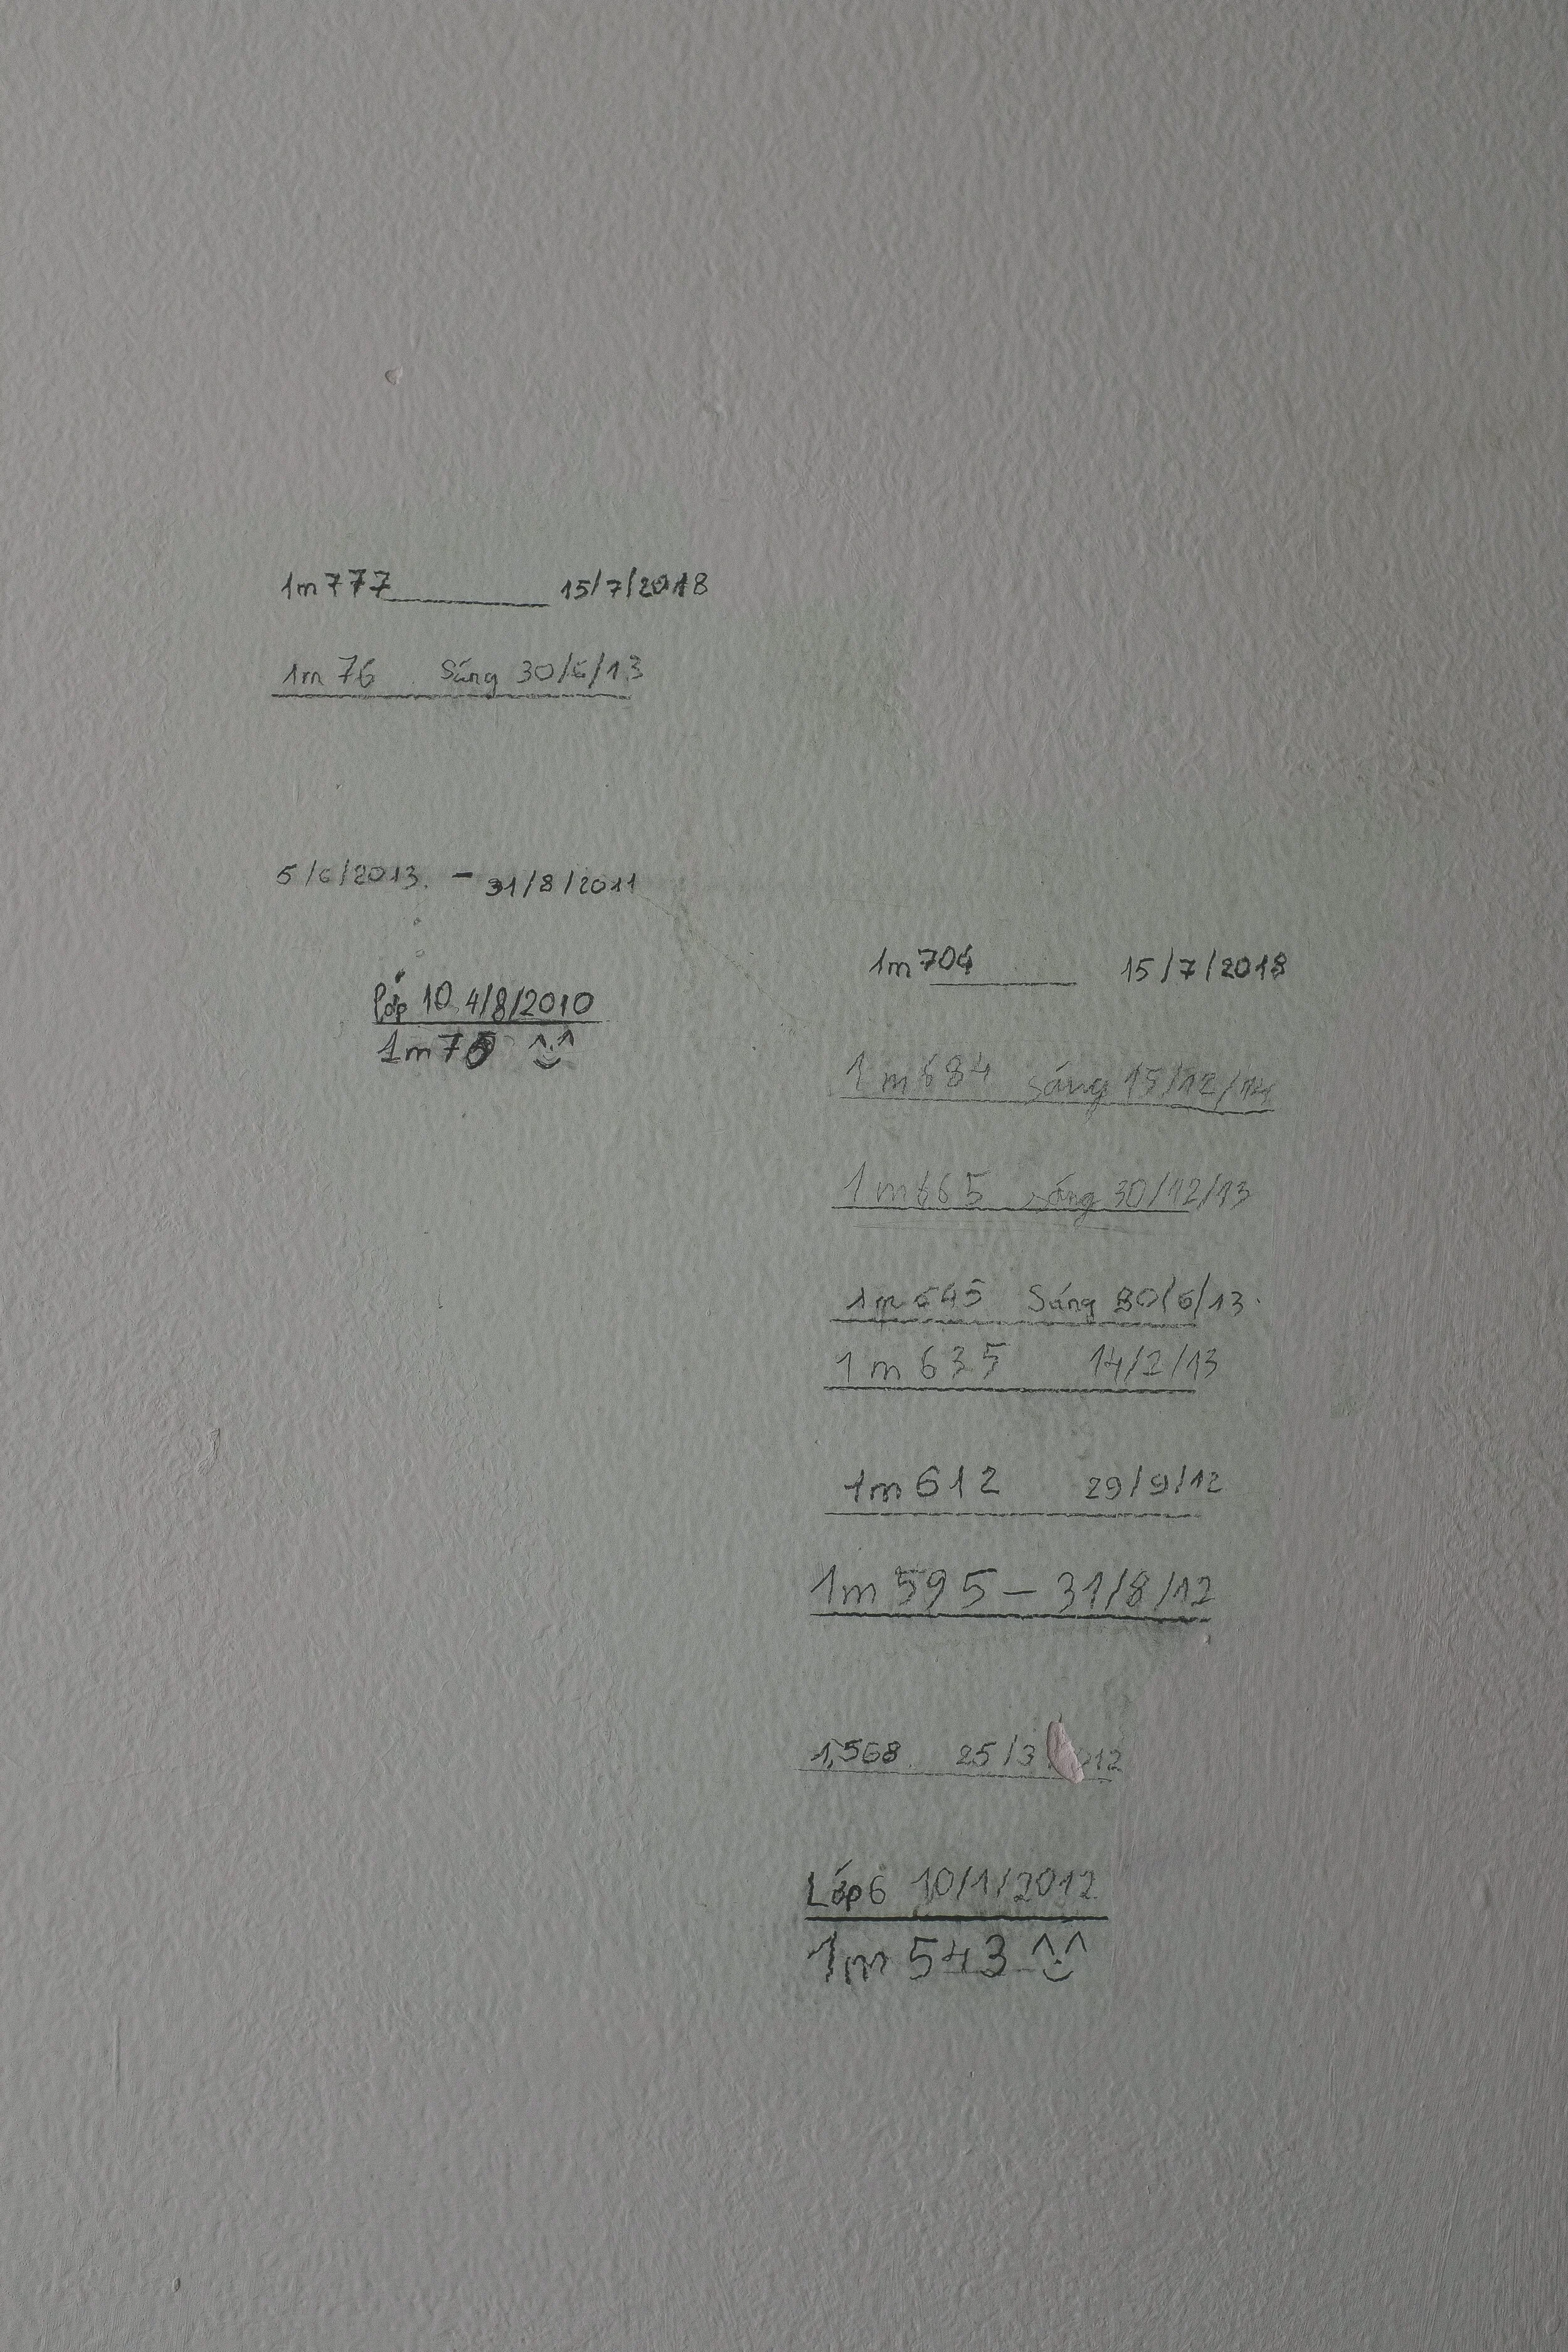 1m777 15/7/2018
1m 76 Sáng 30/6/13
5/6/2013. - 31/8/2011
lớp 10 4/8/2010
1m75 ^.^
1m704 15/7/2018
1m684 sáng 15/12/14
1m665 sáng 30/12/13
1m645 Sáng 30/6/13.
1m635 14/2/13
1m612 29/9/12
1m595 - 31/8/12
1,568. 25/3 012
Lớp 6 10/1/2012
1m 543 ^.^